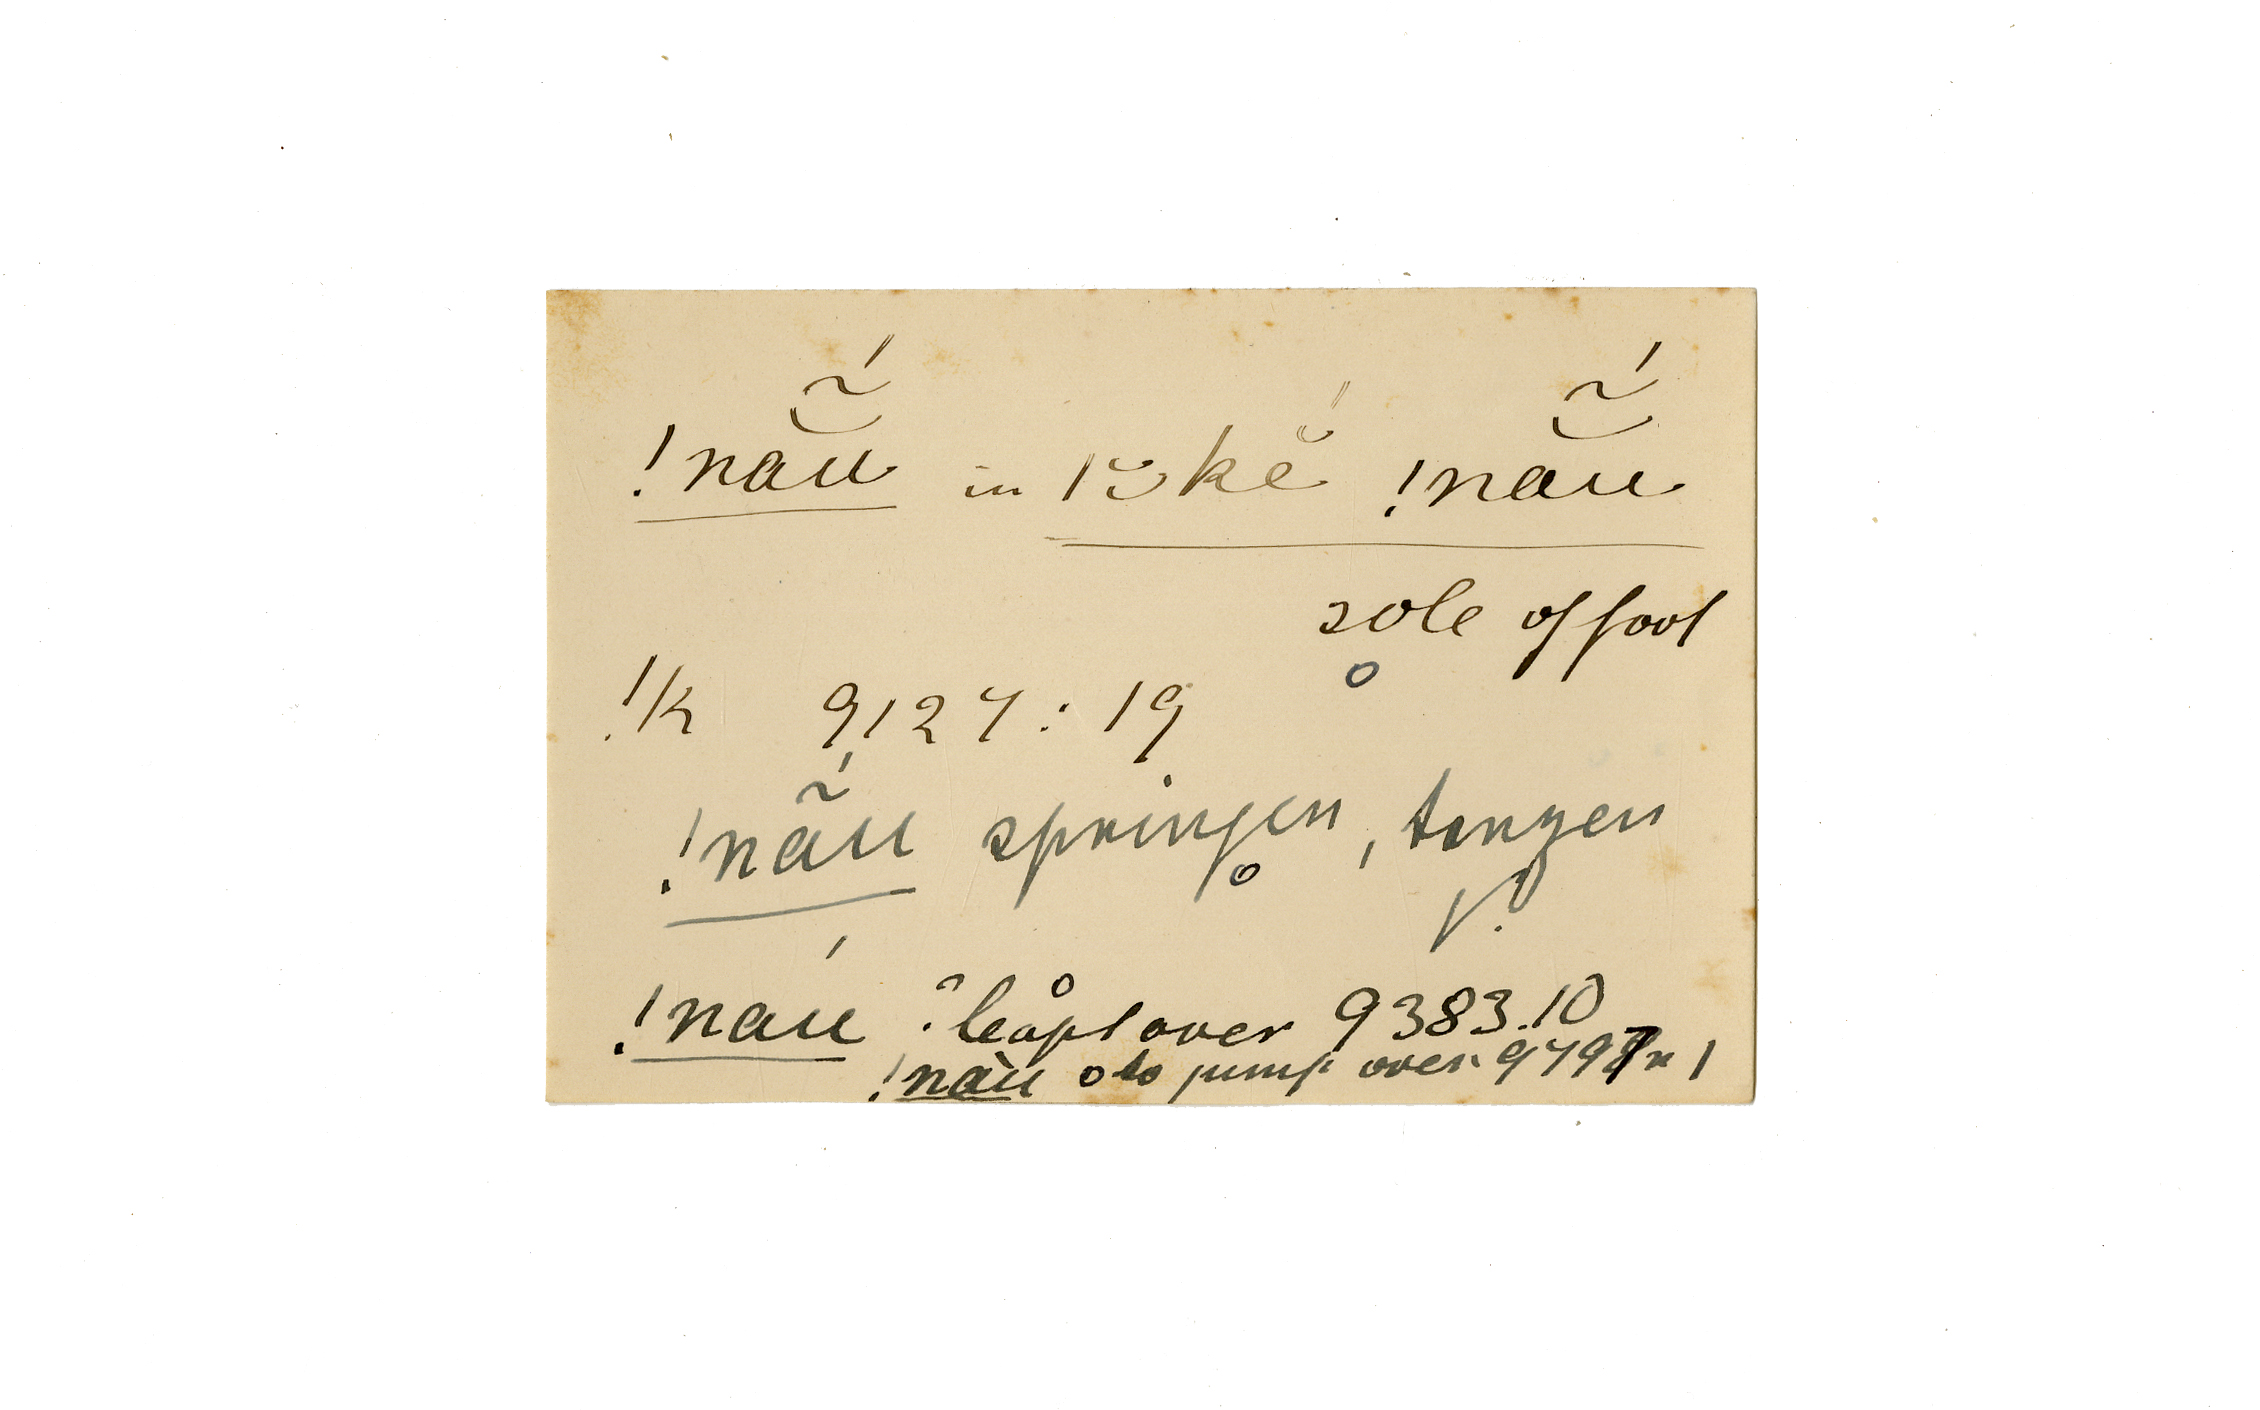 !nã̆ú in |ŭkĕ́ !nã̆ú
sole of foot
!k 9127 : 19
!nã́u springen, tanzen
V.
!náu ? leapt over 9383.10
!nàu to jump over 9797 r 1